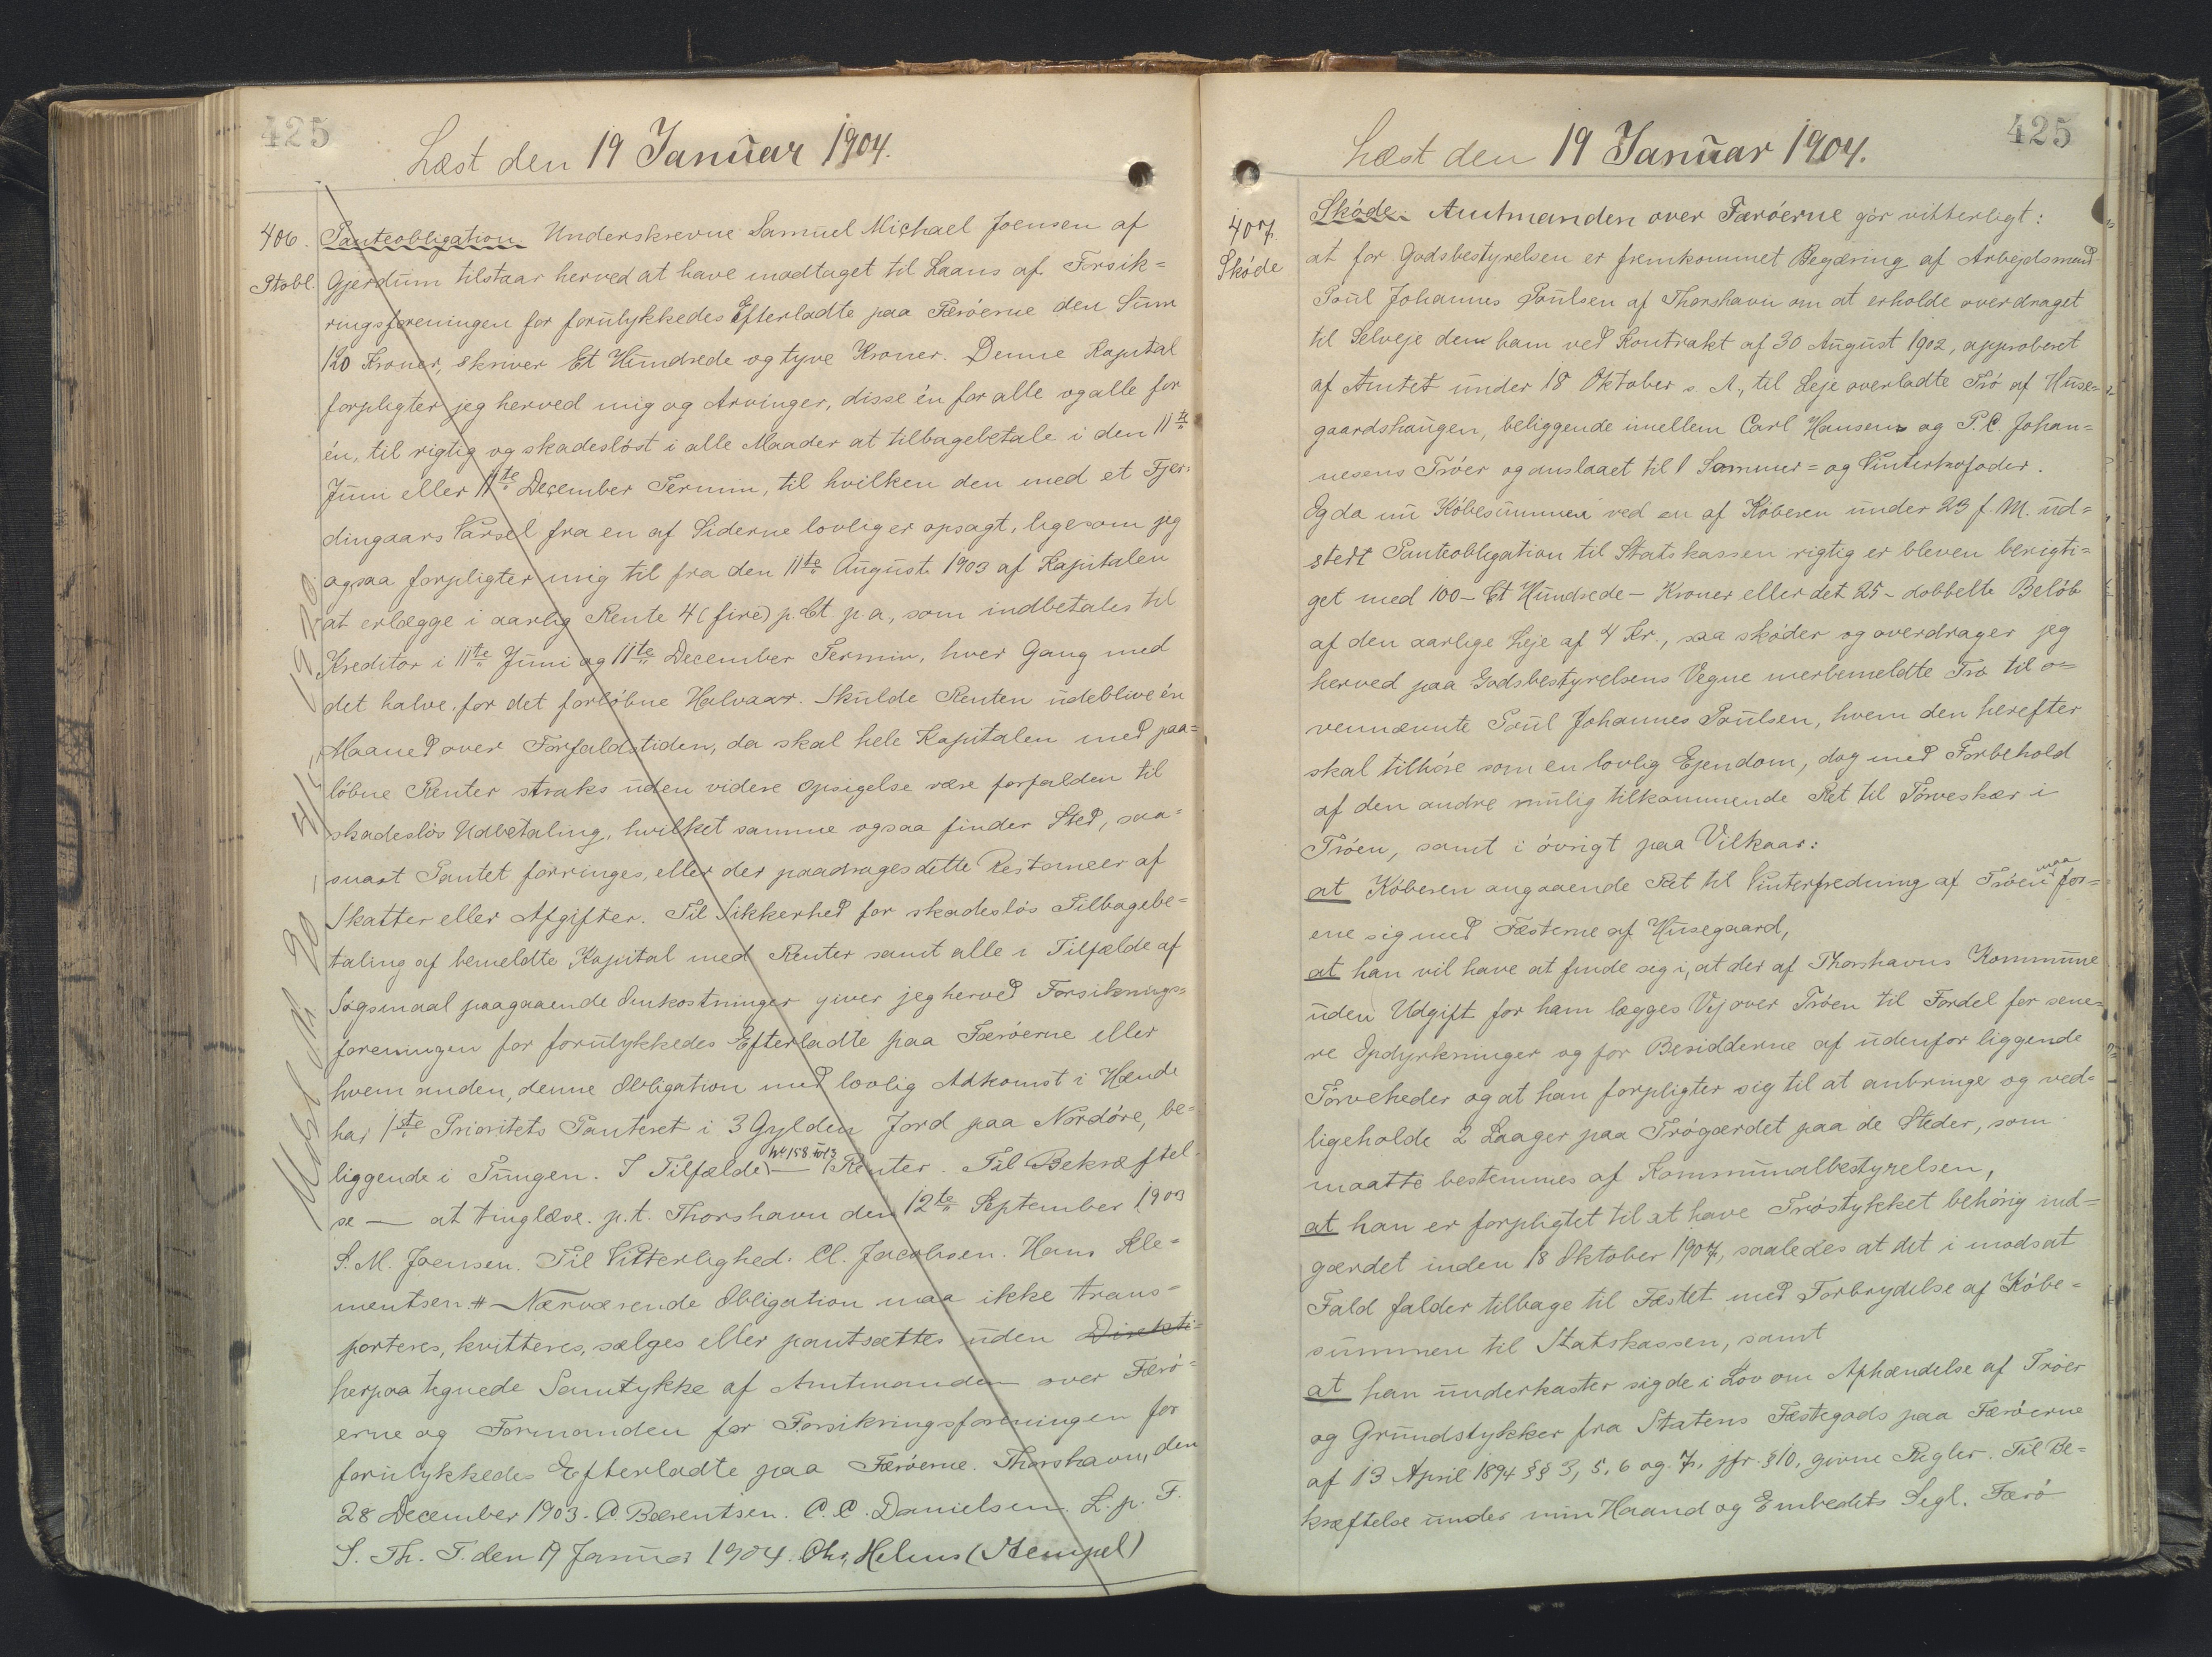 425
Læst den 19 Januar 1904.
406. Panteobligation. Underskrevne Samuel Michael Joensen af
Ptobl. Gjerdum tilstaar herved at have modtaget til Laans af Forsik=
ringsforeningen for forulykkedes Efterladte paa Færöerne den Sum
120 Kroner, skriver Et Hundrede og tyve Kroner. Denne Kapital
forpligter jeg herved mig og Arvinger, disse én for alle og alle for
én, til rigtig og skadeslöst i alle Maader at tilbagebetale i den 11te
Juni eller 11te December Termin, til hvilken den med et Fjer=
dingaars Varsel fra en af Siderne lovlig er opsagt, ligesom jeg
ogsaa forpligter mig til fra den 11te August 1903 af Kapitalen
at erlægge i aarlig Rente 4 (fire) p. Ct p a, som indbetales til
Kreditor i 11te Juni og 11te December Termin, hver Gang med
det halve for det forlöbne Halvaar. Skulde Renten udeblive én
Maaned over Forfaldstiden, da skal hele Kapitalen med paa=
löbne Renter straks uden videre Opsigelse være forfalden til
skadeslös Udbetaling, hvilket samme ogsaa finder Sted, saa=
snart Pantet forringes, eller der paadrages dette Restancer af
Skatter eller Afgifter. Til Sikkerhed for skadeslös Tilbagebe=
taling af bemeldte Kapital med Renter samt alle i Tilfælde af
Sögsmaal paagaaende Omkostninger giver jeg herved Forsikrings=
foreningen for forulykkedes Efterladte paa Færöerne eller
hvem anden, denne Obligation med lovlig Adkomst i Hænde
har 1ste Prioritets Panteret i 3 Gylden Jord paa Nordöre, be=
liggende i Tungen. I Tilfælde — Renter. Til Bekræftel=
se — at tinglæse. p.t. Thorshavn den 12te September 1903
S. M. Joensen. Til Vitterlighed: Cl. Jacobsen. Hans Kle=
mentsen. # Nærværende Obligation maa ikke trans=
porteres, kvitteres, sælges eller pantsættes uden Direkti=
herpaa tegnede Samtykke af Amtmanden over Færö=
erne og Formanden for Forsikringsforeningen for
forulykkedes Efterladte paa Færöerne. Thorshavn, den
28 December 1903. C. Bærentsen. C. C. Danielsen. L. p. F.
S. Th. T. den 19 Januar 1904. Chr. Helms (Stempel)
425
Læst den 19 Januar 1904.
407. Sköde. Amtmanden over Færöerne gör vitterligt:
Sköde at for Godsbestyrelsen er fremkommet Begæring af Arbejdsmand
Poul Johannes Poulsen af Thorshavn om at erholde overdraget
til Selveje den ham ved Kontrakt af 30 August 1902, approberet
af Amtet under 18 Oktober s. A., til Leje overladte Trö af Huse=
gaardshaugen, beliggende imellem Carl Hansens og P. C. Johan=
nesens Tröer og anslaaet til 1 Sommer= og Vinterkofoder.
Og da nu Köbesummen ved en af Köberen under 23 f. M. ud=
stedt Panteobligation til Statskassen rigtig er bleven berigti=
get med 100 – Et Hundrede – Kroner eller det 25 – dobbelte Belöb
af den aarlige Leje af 4 Kr., saa sköder og overdrager jeg
herved paa Godsbestyrelsens Vegne merbemeldte Trö til o=
vennævnte Poul Johannes Poulsen, hvem den herefter
skal tilhöre som en lovlig Ejendom, dog med Forbehold
af den andre mulig tilkommende Ret til Törveskær i
Tröen, samt i övrigt paa Vilkaar:
at Köberen angaaende Ret til Vinterfredning af Tröen maa for=
ene sig med Fæsterne af Husegaard,
at han vil have at finde sig i, at der af Thorshavns Kommune
uden Udgift for ham lægges Vej over Tröen til Fordel for sene=
re Opdyrkninger og for Besidderne af udenfor liggende
Törveheder og at han forpligter sig til at anbringe og ved=
ligeholde 2 Laager paa Trögærdet paa de Steder, som
maatte bestemmes af Kommunalbestyrelsen,
at han er forpligtet til at have Tröstykket behörig ind=
gærdet inden 18 Oktober 1907, saaledes at det i modsat
Fald falder tilbage til Fæstet med Forbrydelse af Köbe=
summen til Statskassen, samt
at han underkaster sig de i Lov om Afhændelse af Tröer
og Grundstykker fra Statens Fæstegods paa Færöerne
af 13 April 1894 §§ 3, 5, 6 og 7, jfr. § 10, givne Regler. Til Be=
kræftelse under min Haand og Embedets Segl. Færö